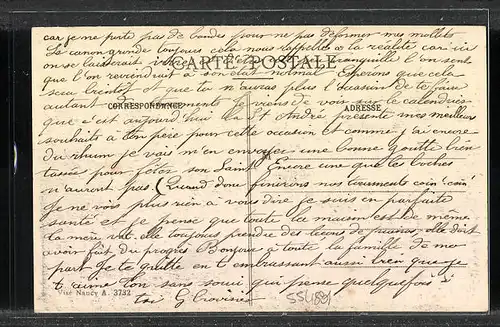 car je ne porte pas de bandes pour ne pas déformer mes mollets
Le canon gronde toujours cela nous rappelle à la réalité car ici
on se laisserait tranquille l'on sent
CARTE POSTALE
que l'on reviendrait à son état normal Espérons que cela
sera bientôt et que tu n'auras plus l'occasion de te faire
CORRESPONDANCE
ADRESSE
autant de Je viens de voir sur le calendrier
que c'est aujourd'hui la St André présente mes meilleurs
souhaits à ton père pour cette occasion et comme j'ai encore
du rhum je vais m'en envoyer une bonne goutte bien
tassée pour fêter son Saint Encore une que les Boches
n'auront pas. (Quand donc finirons nos tourments coin-coin
Je ne vois plus rien à vous dire je suis en parfaite
santé et je pense que toute la maison est de même
la mère va-t-elle toujours prendre des leçons de elle doit
avoir fait du progrès Bonjour à toute la famille de ma
part Je te quitte en t'embrassant aussi bien que je
t'aime ton sans souci qui pense quelquefois à
toi G
Visé Nancy A. 3732